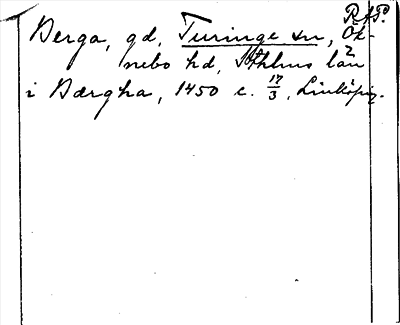 R A P.
Berga, gd, Turinge sn, Ök-
nebo hd, Sthlms län
i Bærgha, 1450 c. 17/3, Linköping.